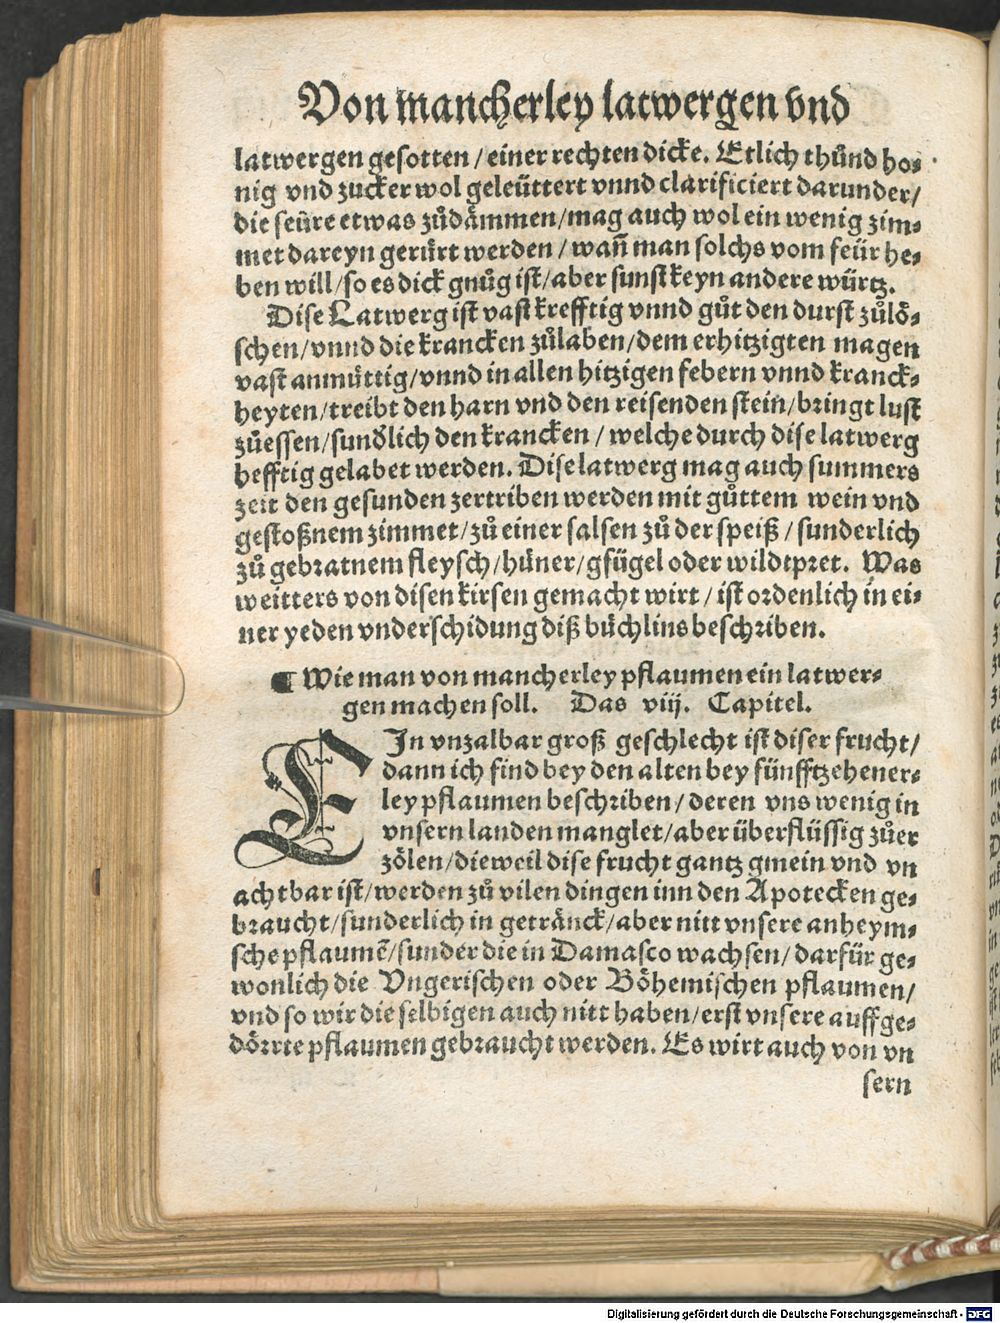 Von mancherley latwergen vnd
latwergen gesotten / einer rechten dicke. Etlich thůnd ho⸗
nig vnd zucker wol geleüttert vnnd clarificiert darunder /
die seüre etwas zůdämmen / mag auch wol ein wenig zim⸗
met dareyn gerürt werden / wañ man solchs vom feür he⸗
ben will / so es dick gnůg ist / aber sunst keyn andere würtz.
Dise Latwerg ist vast krefftig vnnd gůt den durst zůlö⸗
schen / vnnd die krancken zůlaben / dem erhitzigten magen
vast anmüttig / vnnd in allen hitzigen febern vnnd kranck⸗
heyten / treibt den harn vnd den reisenden stein / bringt lust
zůessen / sunďlich den krancken / welche durch dise latwerg
hefftig gelabet werden. Dise latwerg mag auch summers
zeit den gesunden zertriben werden mit gůttem wein vnd
gestoßnem zimmet / zů einer salsen zů der speiß / sunderlich
zů gebratnem fleysch / hüner / gfügel oder wildtpret. Was
weitters von disen kirsen gemacht wirt / ist ordenlich in ei⸗
ner yeden vnderschidung diß büchlins beschriben.
¶ Wie man von mancherley pflaumen ein latwer⸗
gen machen soll. Das viij. Capitel.
EJn vnzalbar groß geschlecht ist diser frucht /
dann ich find bey den alten bey fünfftzehener⸗
ley pflaumen beschriben / deren vns wenig in
vnsern landen manglet / aber überflüssig zůer
zölen / dieweil dise frucht gantz gmein vnd vn
achtbar ist / werden zů vilen dingen inn den Apotecken ge⸗
braucht / sunderlich in getränck / aber nitt vnsere anheym⸗
sche pflaumē / sunder die in Damasco wachsen / darfür ge⸗
wonlich die Vngerischen oder Böhemischen pflaumen /
vnd so wir die selbigen auch nitt haben / erst vnsere auffge⸗
dörrte pflaumen gebraucht werden. Es wirt auch von vn
sern
Digitalisierung gefördert durch die Deutsche Forschungsgemeinschaft - DFG